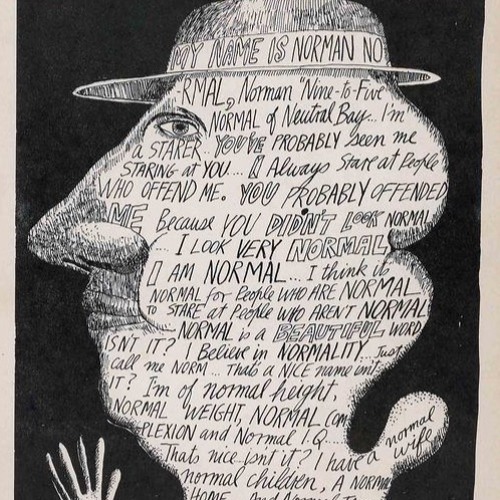 MY NAME IS NORMAN NO
RMAL, Norman "Nine-to-Five
NORMAL of Neutral Bay... I'm
a STARER.. YOU'VE PROBABLY Seen me
STARING at YOU.... I Always Stare at People
WHO OFFEND ME. YOU PROBABLY OFFENDED
ME Because YOU DIDN'T LOOK NORMAL
I LOOK VERY NORMAL
I AM NORMAL... I think it's
NORMAL for People WHO ARE NORMAL
TO STARE at People WHO AREN'T NORMAL
NORMAL is a BEAUTIFUL WORD
ISN'T IT? I Believe in NORMALITY. Just
call me NORM... Thats a NICE name isnt
IT? I'm of normal height,
NORMAL WEIGHT, NORMAL COM
PLEXION and Normal I.Q....
Thats nice isnt it? I have a normal wife,
normal children, A NORMAL
HOME, And Normal